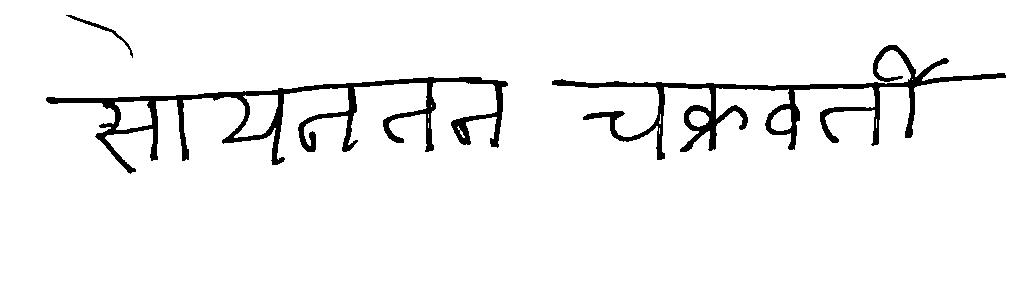 सोयनतन चक्रवर्ती